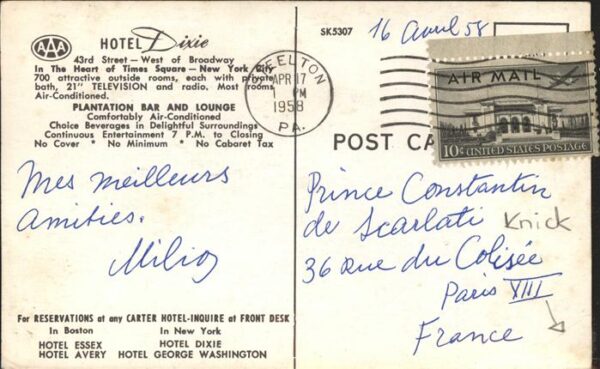 AAA
HOTEL Dixie
43rd Street — West of Broadway
In The Heart of Times Square — New York City
700 attractive outside rooms, each with private
bath, 21" TELEVISION and radio. Most rooms
Air-Conditioned.
PLANTATION BAR AND LOUNGE
Comfortably Air-Conditioned
Choice Beverages in Delightful Surroundings
Continuous Entertainment 7 P.M. to Closing
No Cover * No Minimum * No Cabaret Tax
Mes meilleurs
amitiés.
For RESERVATIONS at any CARTER HOTEL-INQUIRE at FRONT DESK
In Boston In New York
HOTEL ESSEX HOTEL DIXIE
HOTEL AVERY HOTEL GEORGE WASHINGTON
SK5307
16 avril 58
STEELTON
APR 17
PM
1958
PA.
AIR MAIL
10¢ UNITED STATES POSTAGE
POST CA
Prince Constantin
de Scarlati Knick
36 Rue du Colisée
Paris VIII
France